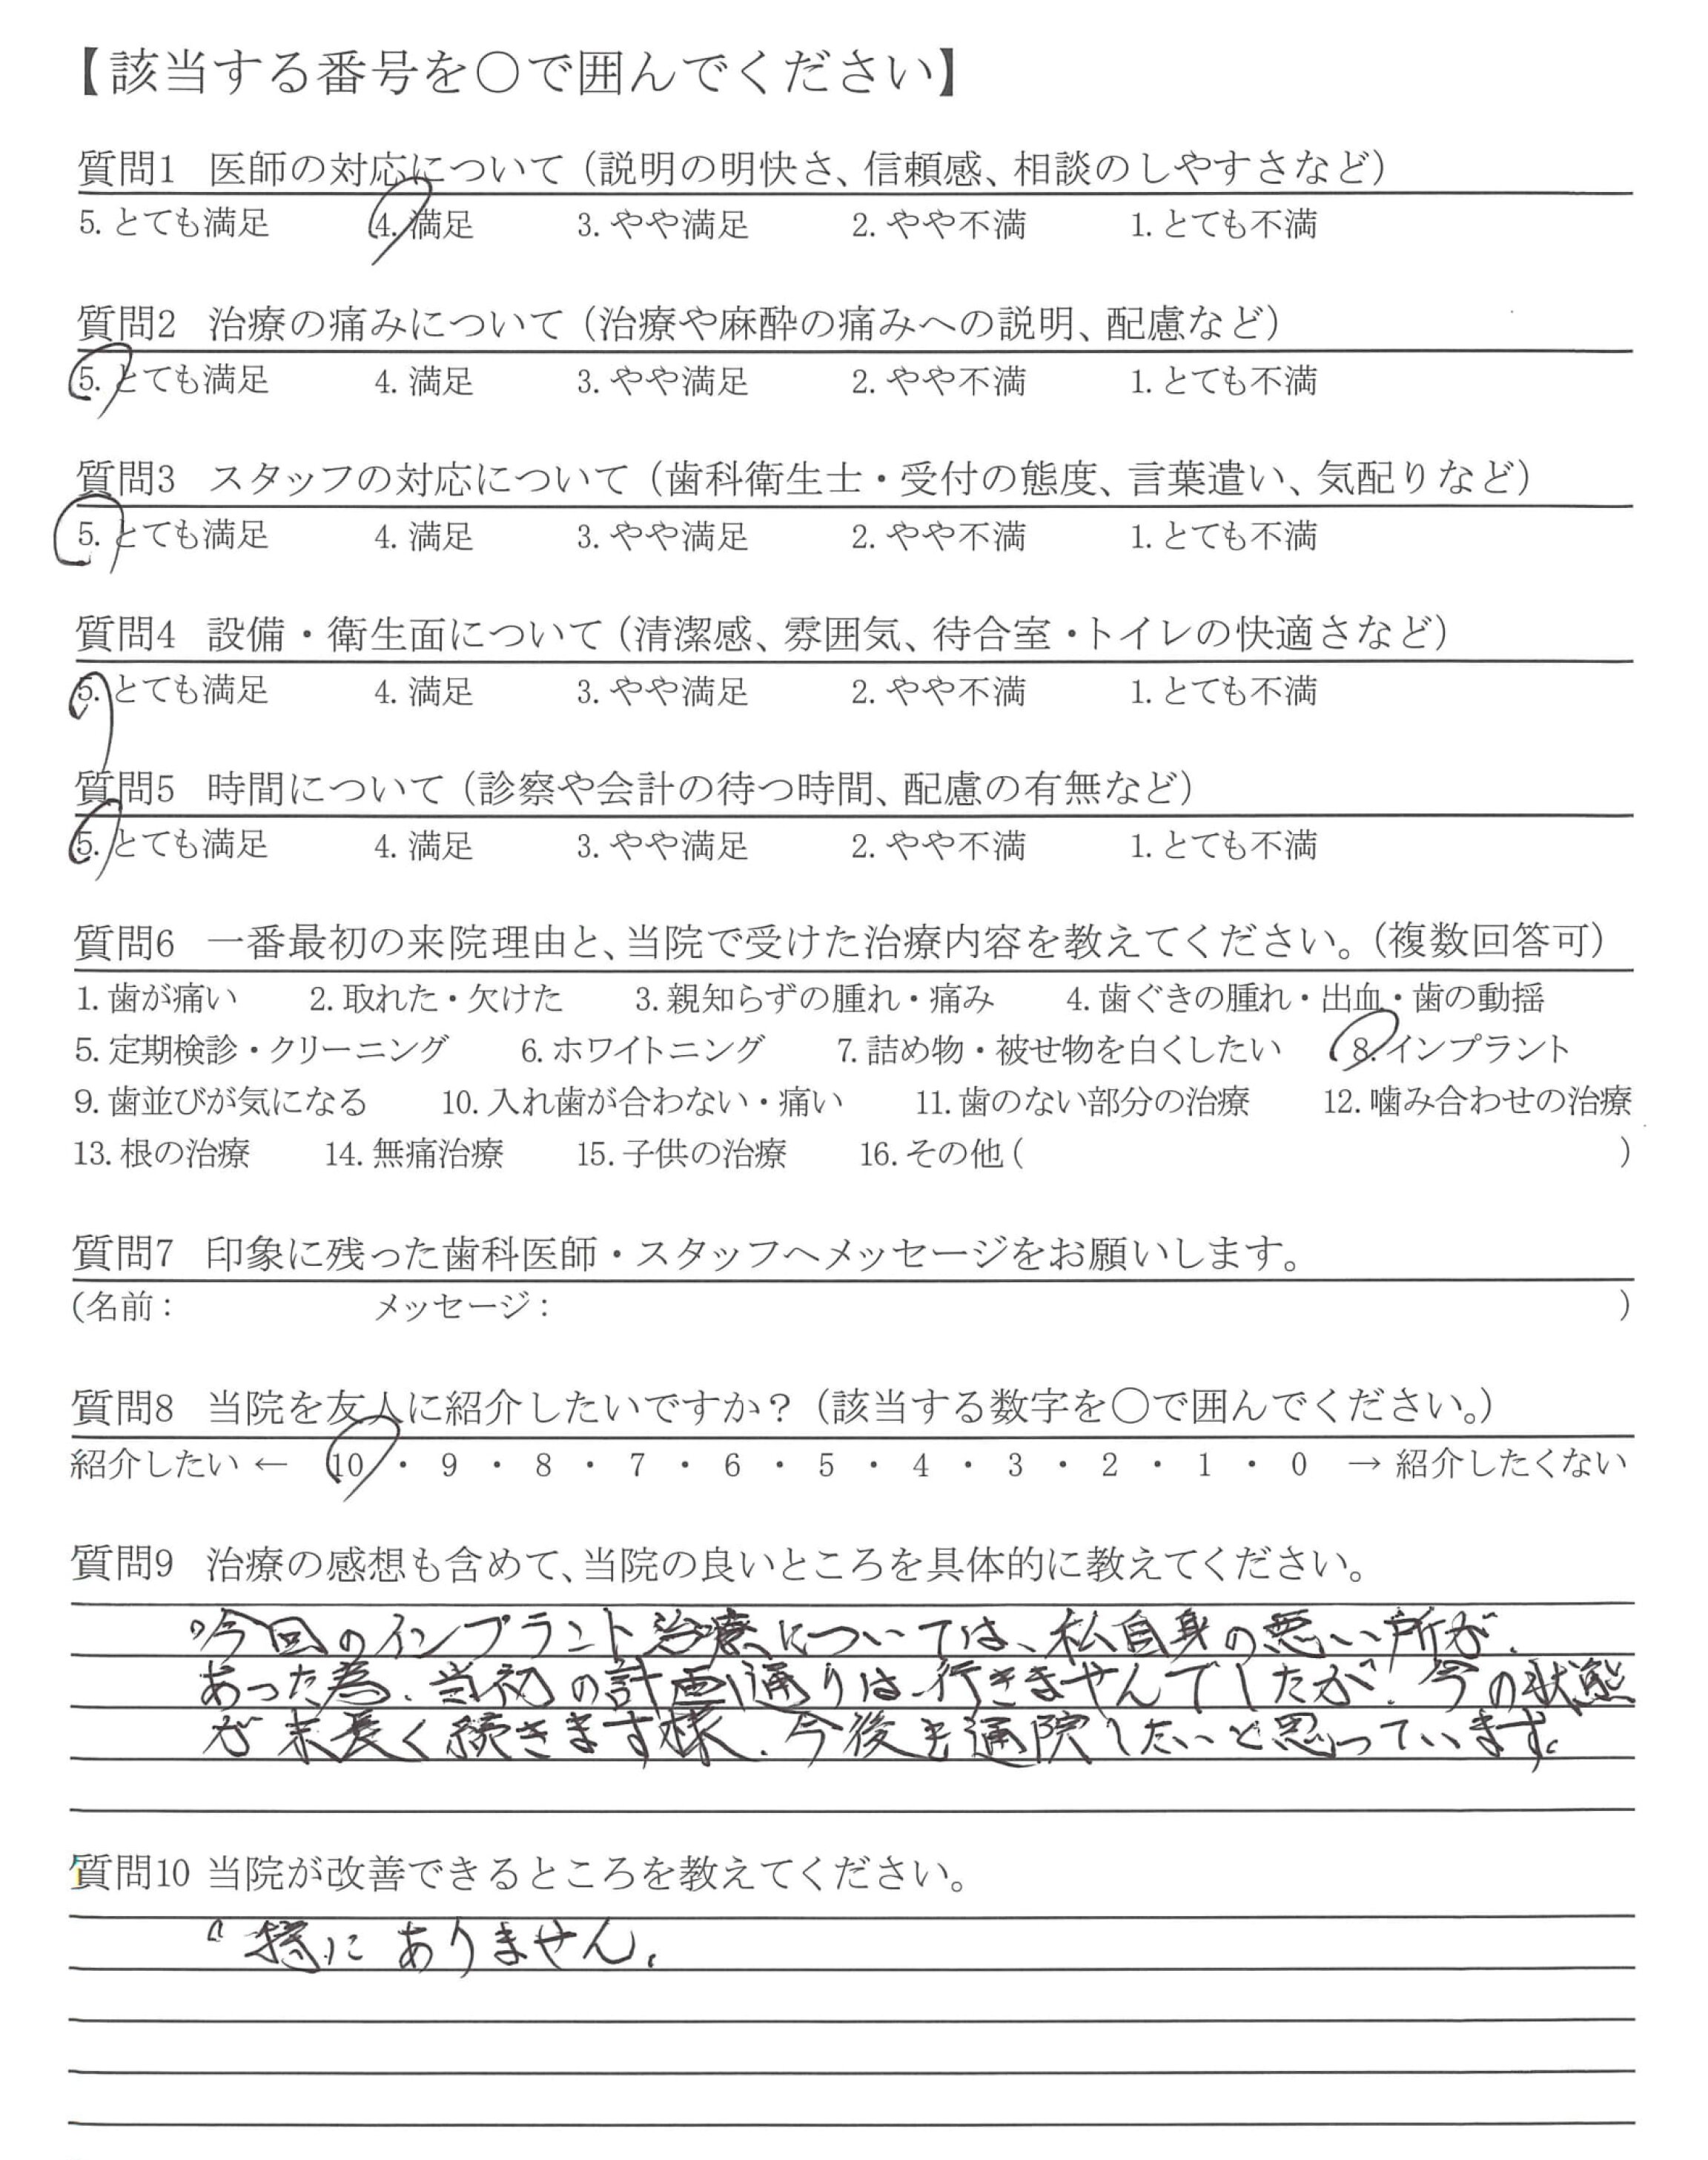 【該当する番号を〇で囲んでください】
質問1 医師の対応について（説明の明快さ、信頼感、相談のしやすさなど）
5. とても満足 4. 満足 3. やや満足 2. やや不満 1. とても不満
質問2 治療の痛みについて（治療や麻酔の痛みへの説明、配慮など）
5. とても満足 4. 満足 3. やや満足 2. やや不満 1. とても不満
質問3 スタッフの対応について（歯科衛生士・受付の態度、言葉遣い、気配りなど）
5. とても満足 4. 満足 3. やや満足 2. やや不満 1. とても不満
質問4 設備・衛生面について（清潔感、雰囲気、待合室・トイレの快適さなど）
5. とても満足 4. 満足 3. やや満足 2. やや不満 1. とても不満
質問5 時間について（診察や会計の待つ時間、配慮の有無など）
5. とても満足 4. 満足 3. やや満足 2. やや不満 1. とても不満
質問6 一番最初の来院理由と、当院で受けた治療内容を教えてください。（複数回答可）
1. 歯が痛い 2. 取れた・欠けた 3. 親知らずの腫れ・痛み 4. 歯ぐきの腫れ・出血・歯の動揺
5. 定期検診・クリーニング 6. ホワイトニング 7. 詰め物・被せ物を白くしたい 8. インプラント
9. 歯並びが気になる 10. 入れ歯が合わない・痛い 11. 歯のない部分の治療 12. 噛み合わせの治療
13. 根の治療 14. 無痛治療 15. 子供の治療 16. その他 ( )
質問7 印象に残った歯科医師・スタッフへメッセージをお願いします。
(名前： メッセージ： )
質問8 当院を友人に紹介したいですか？（該当する数字を〇で囲んでください。）
紹介したい ← 10 ・ 9 ・ 8 ・ 7 ・ 6 ・ 5 ・ 4 ・ 3 ・ 2 ・ 1 ・ 0 → 紹介したくない
質問9 治療の感想も含めて、当院の良いところを具体的に教えてください。
。今回のインプラント治療については、私自身の悪い所が、
あった為、当初の計画通りは行きませんでしたが、今の状態
が末長く続きます様、今後も通院したいと思っています。
質問10 当院が改善できるところを教えてください。
。特に ありません。